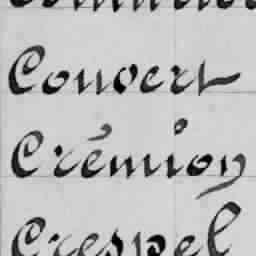 Convert
Crémion
Crespel